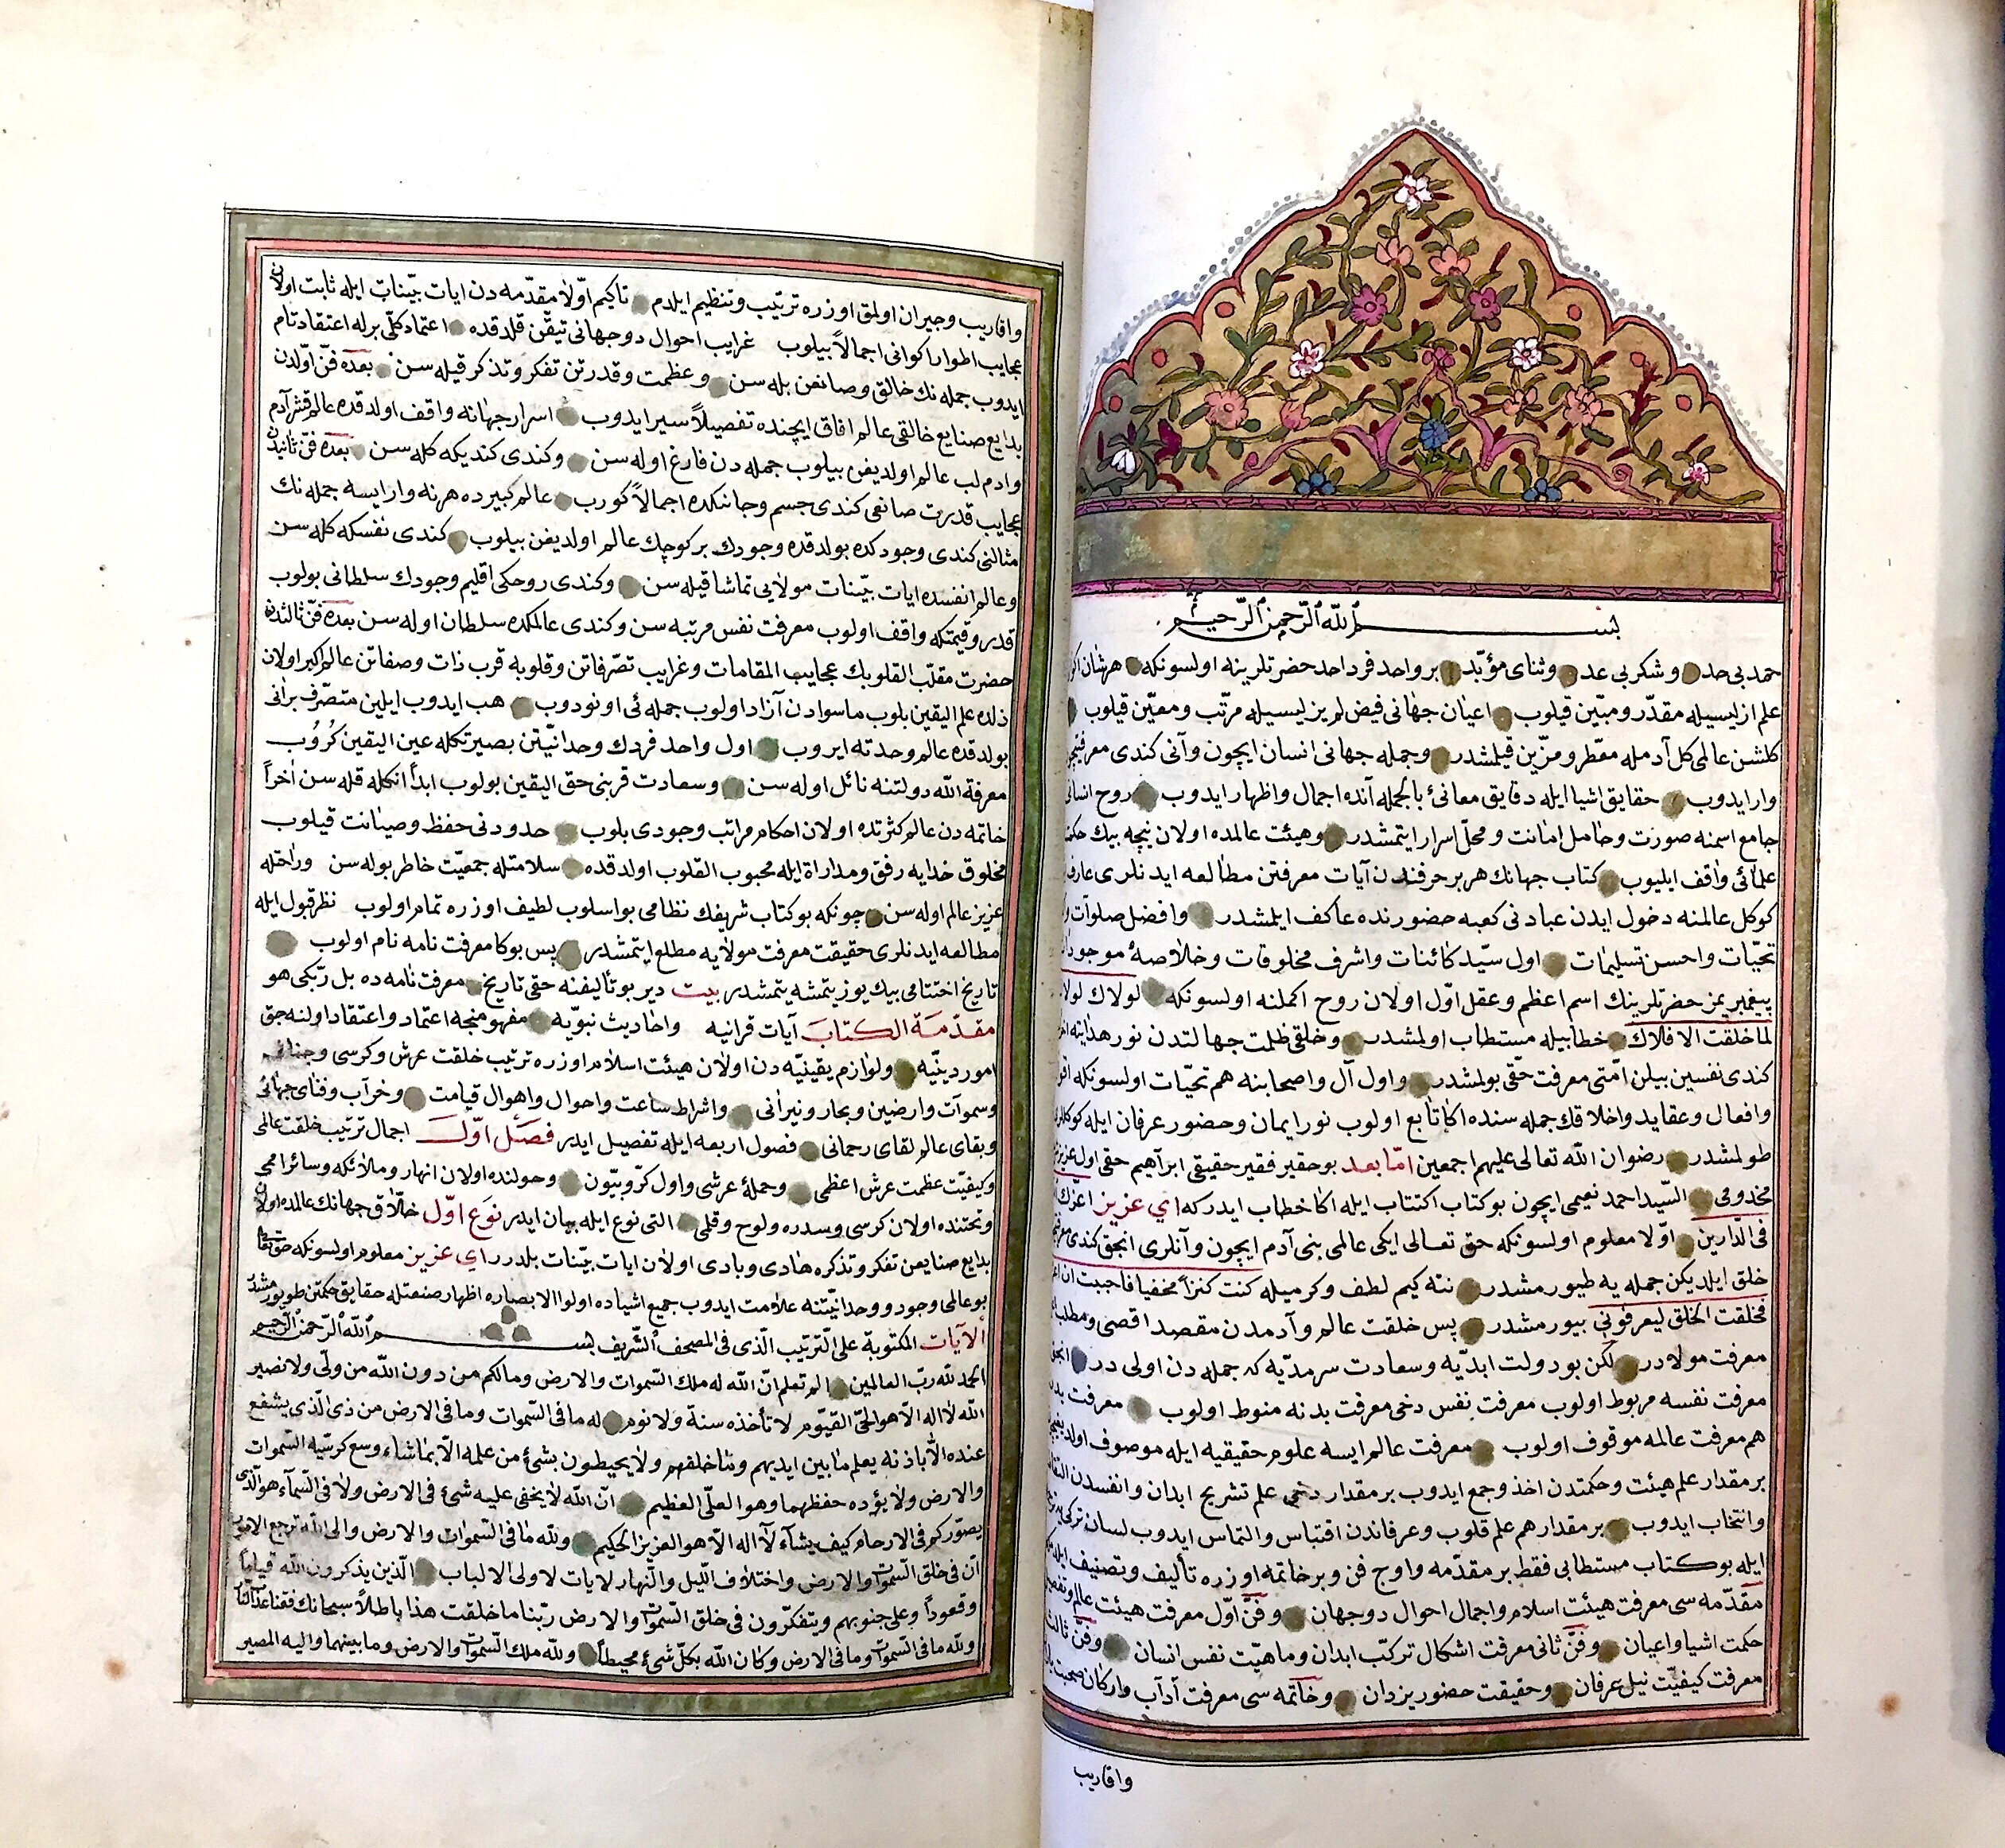 بسم الله الرحمن الرحیم
حمد بی حد و شکر بی عد و ثنای مؤبّد بر واحد فرد احد حضرتلرینه اولسونکه هرشان
علم ازلیسیله مقدّر و مبیّن قیلوب اعیان جهانی فیض لم یزلیسیله مرتّب و معیّن قیلوب
کلشن عالمی کل آدمله معطّر و مزّین قیلمشدر و جمله جهانی انسان ایچون و آنی کندی
وار ایدوب حقایق اشیا ایله دقایق معانئ بالجمله آنده اجمال و اظهار ایدوب روح
جامع اسمنه صورت و حامل امانت و محلّ اسرار ایتمشدر و هیئت عالمده اولان نیچه بیك
علمائی واقف ایلیوب کتاب جهانك هر بر حرفندن آیات معرفتن مطالعه ایدنلری
کوکل عالمنه دخول ایدن عبادنی کعبه حضورنده عاکف ایلمشدر و افضل صلوات
تحیّات و احسن تسلیمات اول سیّد کائنات و اشرف مخلوقات و خلاصهٔ
پیغمبریمز حضرتلرینك اسم اعظم و عقل اوّل اولان روح اکملنه اولسونکه لولاك
لما خلقت الافلاك خطابیله مستطاب اولمشدر و خلقی ظلمت جهالتدن نور هدایته
کندی نفسین بیلن امّتی معرفت حقّی بولمشدر و اول آل و اصحابنه هم تحیّات اولسونکه
و افعال و عقاید و اخلاقك جمله سنده اکا تابع اولوب نور ایمان و حضور عرفان ایله
طولمشدر رضوان الله تعالی علیهم اجمعین امّا بعد بو حقیر فقیر حقیقی ابراهیم حقی اول
مخدومی السّید احمد نعیمی ایچون بو کتاب اکتتاب ایله اکا خطاب ایدر که ای عزیز
فی الدّارین اوّلا معلوم اولسونکه حق تعالی ایکی عالمی بنی آدم ایچون و آنلری انجق کندی
خلق ایلدیکن جمله یه طیور مشدر نته کیم لطف و کرمیله کنت کنزاً مخفیا فاحببت ان
فخلقت الخلق لیعرفونی بیورمشدر پس خلقت عالم و آدمدن مقصد اقصی و
معرفت مولادر لکن بو دولت ابدیّه و سعادت سرمدیّه که جمله دن اولی در
معرفت نفسه مربوط اولوب معرفت نفس دخی معرفت بدنه منوط اولوب معرفت
هم معرفت عالمه موقوف اولوب معرفت عالم ایسه علوم حقیقیه ایله موصوف
بر مقدار علم هیئت و حکمتدن اخذ و جمع ایدوب بر مقدار دخی علم تشریح ابدان و انفسدن
و انتخاب ایدوب بر مقدار هم علم قلوب و عرفاندن اقتباس و التماس ایدوب لسان
ایله بو کتاب مستطابی فقط بر مقدّمه و اوج فن و بر خاتمه اوزره تألیف و تصنیف
مقدّمه سی معرفت هیئت اسلام و اجمال احوال دو جهان و فنّ اوّل معرفت هیئت
حکمت اشیا و اعیان و فنّ ثانی معرفت اشکال ترکّب ابدان و ماهیّت نفس انسان و فنّ
معرفت کیفیّت نیل عرفان و حقیقت حضور یزدان و خاتمه سی معرفت آداب و ارکان
و اقاریب
و اقاریب و جیران اولمق اوزره ترتیب و تنظیم ایلدم تا کیم اوّلا مقدّمه دن ایات بیّنات ایله ثابت اولان
عجایب اطوار اکوانی اجمالاً بیلوب غرایب احوال دو جهانی تیقّن قلدقده اعتماد کلّی برله اعتقاد تام
ایدوب جمله نك خالق و صانعن بله سن و عظمت و قدرتن تفکر و تذکر قیله سن بعده فنّ اوّلدن
بدایع صنایع خالقی عالم افاق ایچنده تفصیلاً سیر ایدوب اسرار جهانه واقف اولدقده عالم قشر آدم
و ادم لب عالم اولدیغن بیلوب جمله دن فارغ اوله سن و کندی کندیکه کله سن بعده فنّ ثانیدن
عجایب قدرت صانعی کندی جسم و جانکده اجمالاً کورب عالم کبیرده هر نه وار ایسه جمله نك
مثالنی کندی وجودکده بولدقده وجودك بر کوچك عالم اولدیغن بیلوب کندی نفسکه کله سن
و عالم انفسده ایات بیّنات مولایی تماشا قیله سن و کندی روحکی اقلیم وجودك سلطانی بولوب
قدر و قیمتکه واقف اولوب معرفت نفس مرتبه سن و کندی عالمکده سلطان اوله سن بعده فنّ ثالثده
حضرت مقلّب القلوبك عجایب المقامات و غرایب تصّرفاتن و قلوبه قرب ذات و صفاتن عالم اکبر اولان
دلده علم الیقین بلوب ماسوادن آزاد اولوب جمله ئی اونودوب هب ایدوب ایلین متصّرف برانی
بولدقده عالم وحدته ایروب اول واحد فردك وحدانیّتن بصیرتکله عین الیقین کروب
معرفة الله دولتنه نائل اوله سن و سعادت قربنی حق الیقین بولوب ابداً انکله قله سن اخراً
خاتمه دن عالم کثرتده اولان احکام مراتب وجودی بلوب حدودنی حفظ و صیانت قیلوب
مخلوق خدایه رفق و مداراة ایله محبوب القلوب اولدقده سلامتله جمعیّت خاطر بوله سن و راحتله
عزیز عالم اوله سن چونکه بو کتاب شریفك نظامی بو اسلوب لطیف اوزره تمام اولوب نظر قبول ایله
مطالعه ایدنلری حقیقت معرفت مولایه مطلع ایتمشدر پس بوکا معرفت نامه نام اولوب
تاریخ اختتامی بیك یوز یتمشه یتمشدر بیت دیر بو تألیفنه حقی تاریخ معرفت نامه ده بل ربّکی هو
مقدّمة الکتاب آیات قرانیه و احادیث نبویّه مفهومنجه اعتماد و اعتقاد اولنه جق
امور دینیّه و لوازم یقینیّه دن اولان هیئت اسلام اوزره ترتیب خلقت عرش و کرسی و
و سموات و ارضین و بحار و نیرانی و اشراط ساعت و احوال و اهوال قیامت و خراب و فنای جهانی
و بقای عالم لقای رحمانی فصول اربعه ایله تفصیل ایدر فصل اوّل اجمال ترتیب خلقت عالمی
و کیفیّت عظمت عرش اعظمی و حملهٔ عرشی و اول کرّوبیّون و حولنده اولان انهار و ملائکه و سائر امی
و تحتنده اولان کرسی و سدره و لوح و قلمی التی نوع ایله بیان ایدر نوع اوّل خلّاق جهانك عالمده اولان
بدایع صنایعن تفکر و تذکره هادی و بادی اولان ایات بیّنات بلدرر ای عزیز معلوم اولسونکه حق تعالی
بو عالمی وجود و وحدانیّتنه علامت ایدوب جمیع اشیاده اولوا الابصاره اظهار صنعتله حقایق حکمتن طویورمشدر
ألایات المکتوبة علی الّترتیب الّذی فی المصحف الشّریف بسم الله الرّحمن الرّحیم
الحمد لله ربّ العالمین الم تعلم انّ الله له ملك السّموات والارض ومالکم من دون الله من ولیّ ولا نصیر
الله لا اله الّا هو الحیّ القیّوم لا تأخذه سنة ولا نوم له ما فی السّموات وما فی الارض من ذی الّذی یشفع
عنده الّا باذنه یعلم ما بین ایدیهم وما خلفهم ولا یحیطون بشیئ من علمه الّا بما شاء وسع کرسّیه السّموات
والارض ولا یؤده حفظهما وهو العلّی العظیم انّ الله لا یخفی علیه شیئ فی الارض ولا فی السّمآء هو الّذی
یصوّرکم فی الارحام کیف یشآء لآ اله الّا هو العزیز الحکیم ولله ما فی السّموات والارض والی الله ترجع الامور
انّ فی خلق السّموات والارض واختلاف الّلیل والّنهار لایات لاولی الالباب الّذین یذکرون الله قیاماً
وقعوداً وعلی جنوبهم ویتفکّرون فی خلق السّموات والارض ربّنا ما خلقت هذا باطلاً سبحانك فقنا عذاب النّار
ولله ما فی السّموات وما فی الارض وکان الله بکلّ شیئ محیطاً ولله ملك السّموات والارض وما بینهما والیه المصیر